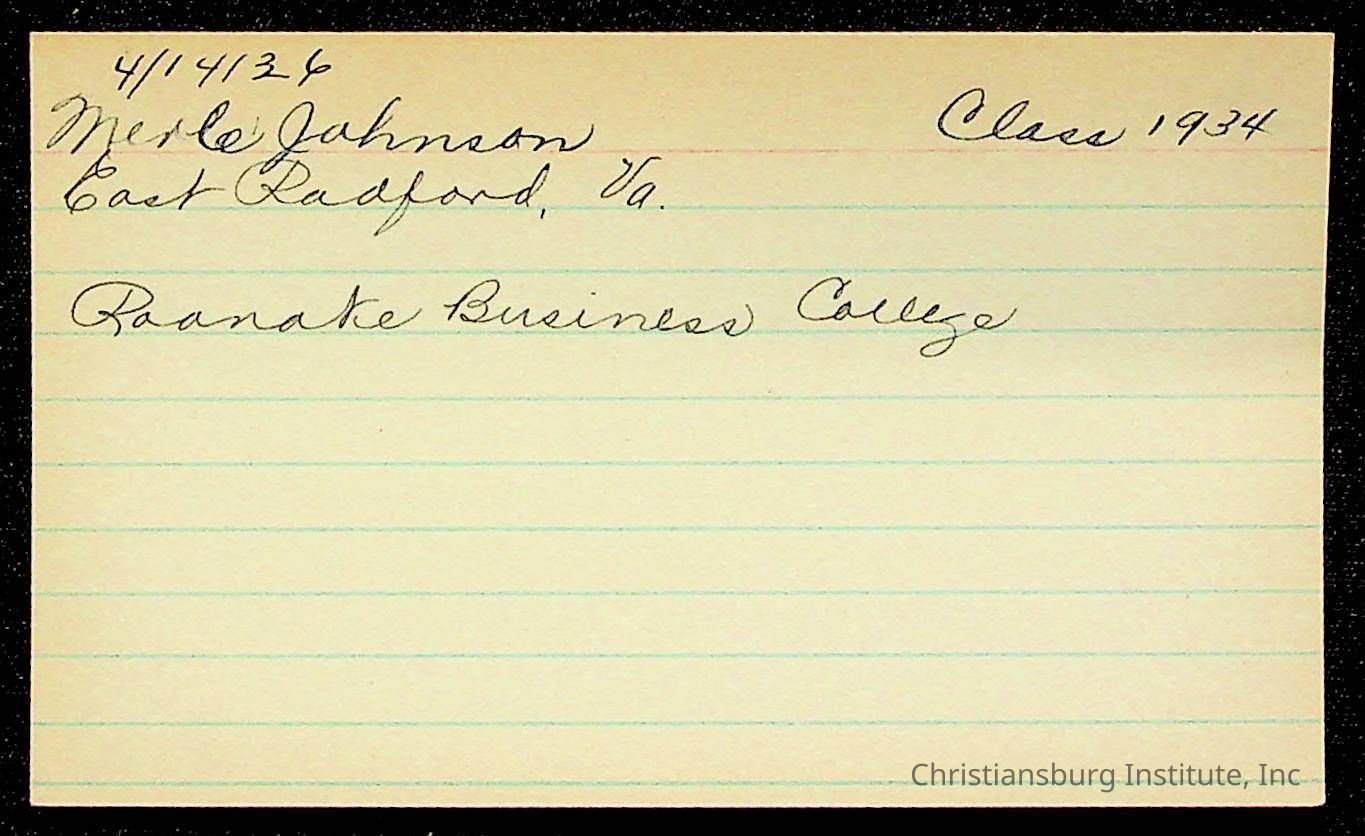 4/14/36
Merle Johnson Class 1934
East Radford, Va.
Roanoke Business College
Christiansburg Institute, Inc